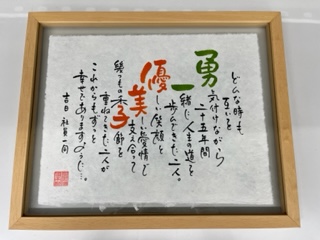 どんな時も、
互いを
勇気付けながら
二十五年間
一緒に人生の道を
歩んできた二人。
優しい笑顔と
美しい愛情で
支え合って
幾つもの季節を
重ねてきた二人が
これからもずっと
幸せでありますように…。
吉日 社員一同